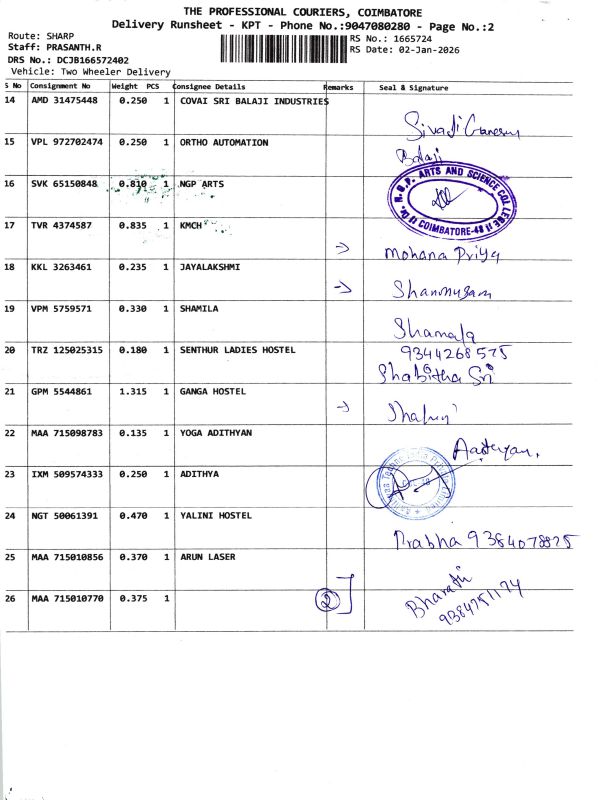 THE PROFESSIONAL COURIERS, COIMBATORE
Delivery Runsheet - KPT - Phone No.:9047080280 - Page No.:2
Route: SHARP
Staff: PRASANTH.R
DRS No.: DCJB166572402
Vehicle: Two Wheeler Delivery
RS No.: 1665724
RS Date: 02-Jan-2026
S No Consignment No Weight PCS Consignee Details Remarks Seal & Signature
14 AMD 31475448 0.250 1 COVAI SRI BALAJI INDUSTRIES
Sivaji Ganesan
15 VPL 972702474 0.250 1 ORTHO AUTOMATION
Balaji
16 SVK 65150848 0.810 1 NGP ARTS
Dr. N.G.P. ARTS AND SCIENCE COLLEGE
COIMBATORE-48
17 TVR 4374587 0.835 1 KMCH
→ Mohana Priya
18 KKL 3263461 0.235 1 JAYALAKSHMI
→ Shanmugam
19 VPM 5759571 0.330 1 SHAMILA
Shamala
9344268575
20 TRZ 125025315 0.180 1 SENTHUR LADIES HOSTEL
Shabitha Sri
21 GPM 5544861 1.315 1 GANGA HOSTEL
→
22 MAA 715098783 0.135 1 YOGA ADITHYAN
23 IXM 509574333 0.250 1 ADITHYA
24 NGT 50061391 0.470 1 YALINI HOSTEL
Prabha 9384078825
25 MAA 715010856 0.370 1 ARUN LASER
26 MAA 715010770 0.375 1
2
Bharathi
9384751174